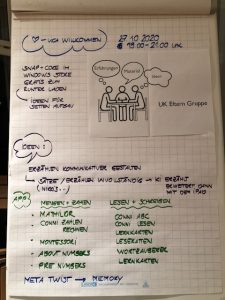 ♡-LICH WILLKOMMEN
27.10.2020
19:00-21:00 Uhr
SNAP-CORE IM
WINDOWS STORE
GRATIS ZUM
RUNTER LADEN
IDEEN FÜR
SEITEN AUFBAU
Erfahrungen
Material
Ideen
UK Eltern Gruppe
IDEEN:
ERZÄHLEN KOMMUNIKATIVER GESTALTEN
SÄTZE/ERZÄHLEN UNVOLLSTÄNDIG → KI ERZÄHLT
ERWEITERT DANN
MIT DEM
APPS: MENGEN + ZAHLEN
LESEN + SCHREIBEN
- MATHILDR
CONNI ABC
- CONNI ZAHLEN
CONNI LESEN
RECHNEN
LERNKARTEN
- MONTESSORI
LESERATTEN
- ABOUT NUMBERS
WORTZAUBERER
- PRE NUMBERS
LERNKARTEN
META TWIST → MEMORY